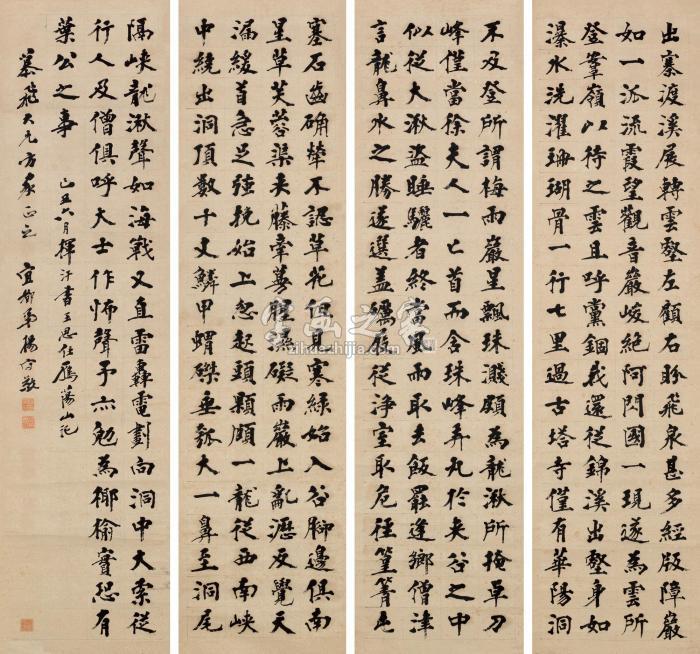 出寨渡溪展轉雲壑左顧右盼飛泉甚多經版障巖
如一派流霞望觀音巖峻絕阿閦國一現遂為雲所
登鞏嶺以待之雲且呼黨錮我還從錦溪出壑身如
瀑水洗濯珊瑚骨一行七里過古塔寺僅有華陽洞
不及登所謂梅雨巖星飄珠濺頗為龍湫所掩單刀
峰僅當徐夫人一匕首而含珠峰弄丸於夾谷之中
似從大湫盜睡驪者終當風而取去飯罷逢鄉僧津
言龍鼻水之勝遂選蓋礪屐從淨室取危徑篁箐
塞石齒确犖不認草花但見寒綠始入谷腳邊俱南
星草芙蓉渠夾藤牽蔓罥桑礙而巖上亂瀝反覺天
漏緩首急足強挽始上忽起頭顆頤一龍從西南峽
中繞出洞頂數十丈鱗甲蝟磔垂瓠大一鼻至洞尾
隔峽龍湫聲如海戰又直雷轟電劃向洞中大索從
行人及僧俱呼大士作怖聲予亦勉為揶揄實恐有
葉公之事 己丑六月揮汗書王思任雁蕩山記
慕飛大兄方家正之 宜都弟楊守敬
書畫之家
zihuazhijia.com